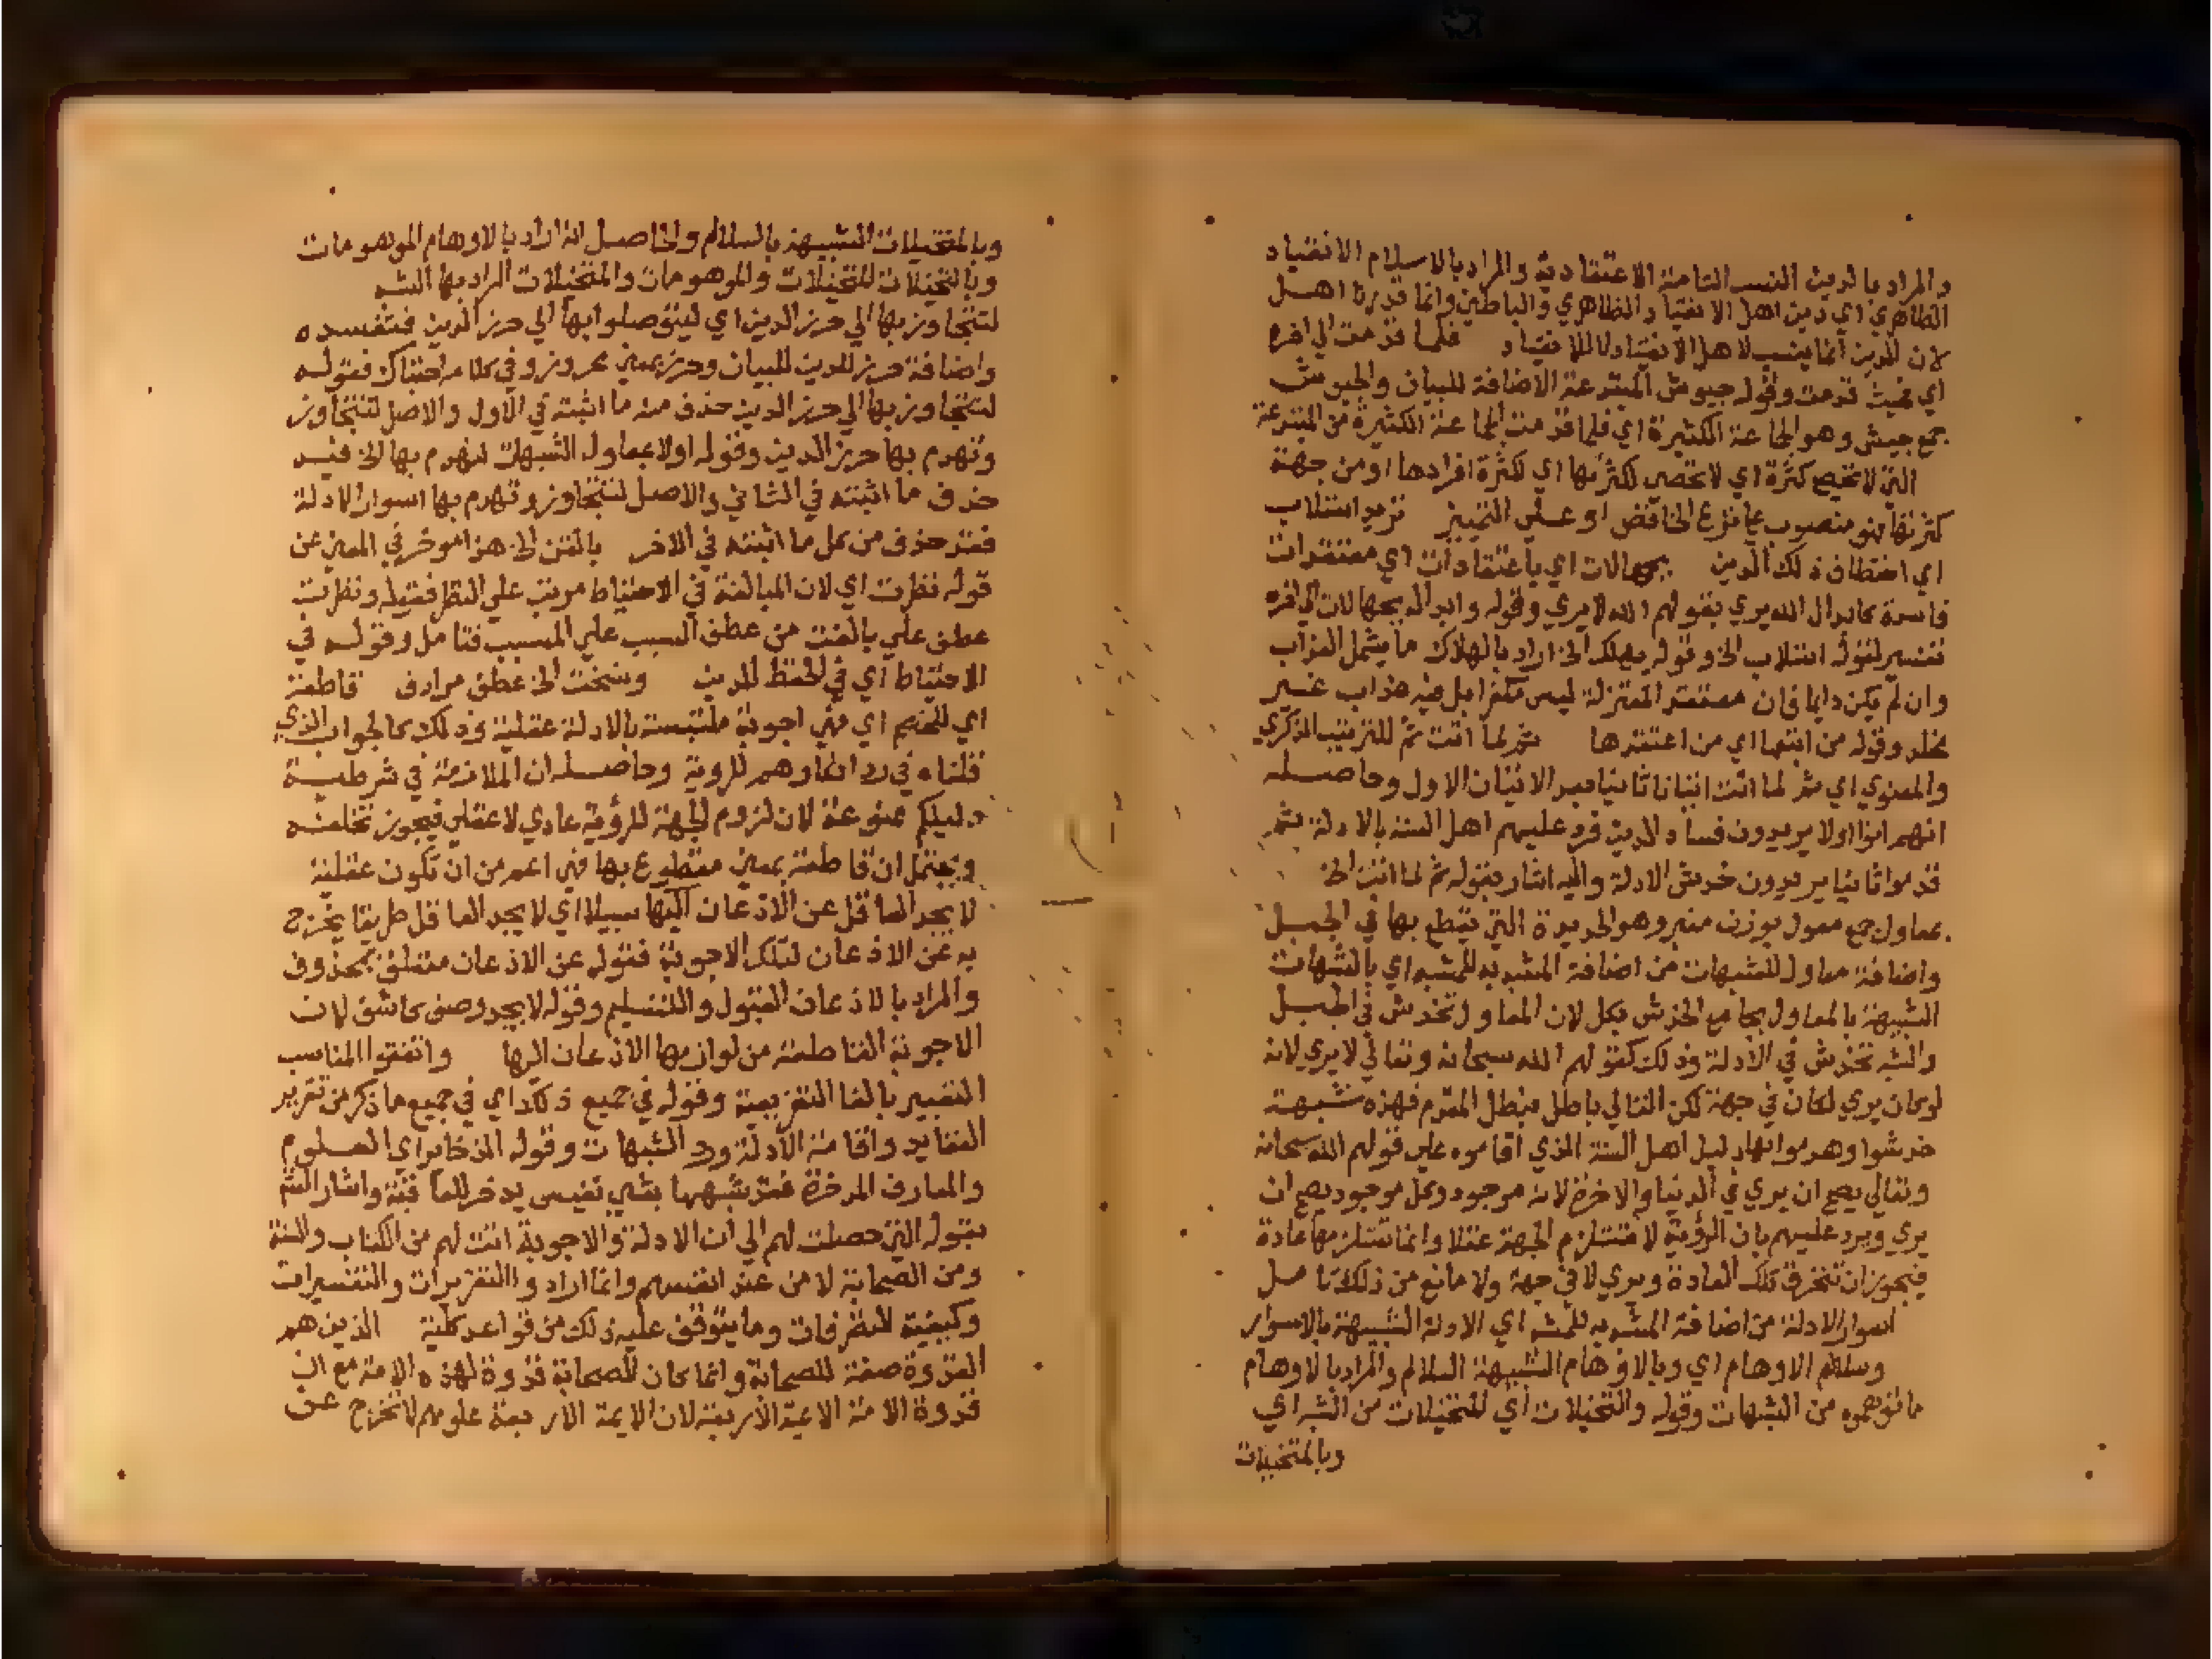 والمراد بالدين النسب التامة الاعتقادية والمراد بالاسلام الانقياد
الظاهري اي دين اهل الانقياد الظاهري والباطني وانما قدرنا اهل
لان الدين انما ينسب لاهل الانقياد لا للانقياد فلما قدمت الي اخره
اي بحيث قدمت وقوله جيوش المبتدعة الاضافة للبيان والجيوش
جمع جيش وهو الجماعة الكثيرة اي فلما قدمت الجماعة الكثيرة من المبتدعة
التي لا تحصي كثرة اي لا تحصي لكثرتها اي لكثرة افرادها او من جهة
كثرتها فهو منصوب علي نزع الخافض او علي التمييز تريد استلاب
اي اختطاف ذلك الدين بجهالات اي باعتقادات اي معتقدات
فاسدة كابدال الله يري بقولهم الله لا يري وقوله وابداله بجهالات الي اخره
تفسير لقوله استلاب الخ وقوله يهلك الخ اراد بالهلاك ما يشمل العذاب
وان لم يكن دايما فان معتقد المعتزلة ليس مكفرا بل فيه عذاب غير
مخلد وقوله من ابتعها اي من اعتقدها ثم لما اتت ثم للترتيب الذكري
والمعنوي اي ثم لما اتت اتيانا ثانيا بعد الاتيان الاول وحاصله
انهم اتوا اولا يريدون فساد الدين فرد عليهم اهل السنة بالادلة ثم
قدموا ثانيا يريدون خدش الادلة واليه اشار بقوله ثم لما اتت الخ
بمعاول جمع معول بوزن منبر وهو الحديدة التي يقطع بها في الجبل
واضافة معاول للشبهات من اضافة المشبه به للمشبه اي بالشبهات
الشبيهة بالمعاول بجامع الخدش بكل لان المعاول تخدش في الجبل
والشبه تخدش في الادلة وذلك كقولهم الله سبحانه وتعالي لا يري لانه
لو كان يري لكان في جهة لكن التالي باطل فبطل المقدم فهذه شبهة
خدشوا وهدموا بها دليل اهل السنة الذي اقاموه علي قولهم الله سبحانه
وتعالي يصح ان يري في الدنيا والاخرة لانه موجود وكل موجود يصح ان
يري ويرد عليهم بان الرؤية لا تستلزم الجهة عقلا وانما تستلزمها عادة
فيجوز ان تنخرق تلك العادة ويري لا في جهة ولا مانع من ذلك تامل
اسوار الادلة من اضافة المشبه به للمشبه اي الادلة الشبيهة بالاسوار
وسلالم الاوهام اي وبالاوهام الشبيهة السلالم والمراد بالاوهام
ما توهموه من الشبهات وقوله والتخيلات اي المتخيلات من الشبه اي
وبالمتخيلات
وبالمتخيلات الشبيهة بالسلالم والحاصل انه اراد بالاوهام الموهومات
وبالتخيلات المتخيلات والموهومات والمتخيلات المراد بها الشبه
لتتجاوز بها الي حرز الدين اي ليتوصلوا بها الي حرز الدين فتفسده
واضافة حرز للدين للبيان وحرز بمعني محروز وفي كلامه احتباك فقوله
لتتجاوز بها الي حرز الدين حذف منه ما اثبته في الاول والاصل لتتجاوز
وتهدم بها حرز الدين وقوله اولا بمعاول الشبهات لتهدم بها الخ فيه
حذف ما اثبته في الثاني والاصل لتتجاوز وتهدم بها اسوار الادلة
فقد حذف من كل ما اثبته في الاخر بالغت الخ هذا موخر في المعني عن
قوله نظرت اي لان المبالغة في الاحتياط مرتب علي النظر فقوله ونظرت
عطف علي بالغت من عطف السبب علي المسبب فتامل وقوله في
الاحتياط اي في الحفظ للدين وسخت الخ عطف مرادف قاطعة
اي للخصم اي فهي اجوبة ملتبسة بالادلة عقلية وذلك كالجواب الذي
قلناه في رد انكارهم للروية وحاصله ان الملازمة في شرطية
دليلكم ممنوعة لان لزوم الجهة للرؤية عادي لا عقلي فيجوز تخلفه
ويحتمل ان قاطعة بمعني مقطوع بها فهي اعم من ان تكون عقلية
لا يجد العاقل عن الاذعان اليها سبيلا اي لا يجد العاقل طريقا يخرج
به عن الاذعان لتلك الاجوبة فقوله عن الاذعان متعلق بمحذوف
والمراد بالاذعان القبول والتسليم وقوله لا يجد وصف كاشف لان
الاجوبة القاطعة من لوازمها الاذعان اليها واتفقوا المناسب
التعبير بالفا التفريعية وقوله في جميع ذلك اي في جميع ما ذكر من تقرير
العقايد واقامة الادلة ورد الشبهات وقوله الذخاير اي العلوم
والمعارف المدخرة فقد شبهها بشي نفيس يدخر للعاقبة واشار الش
بقوله التي حصلت لهم الي ان الادلة والاجوبة اتت لهم من الكتاب والسنة
ومن الصحابة لا من عند انفسهم وانما اراد والتقريرات والتفسيرات
وكيفية التصرفات وما يتوقف عليه ذلك من قواعد كلية الذين هم
القدوة صفة للصحابة وانما كان الصحابة قدوة لهذه الامة مع ان
قدوة الامة الايمة الاربعة لان الايمة الاربعة علومهم لا تخرج عن